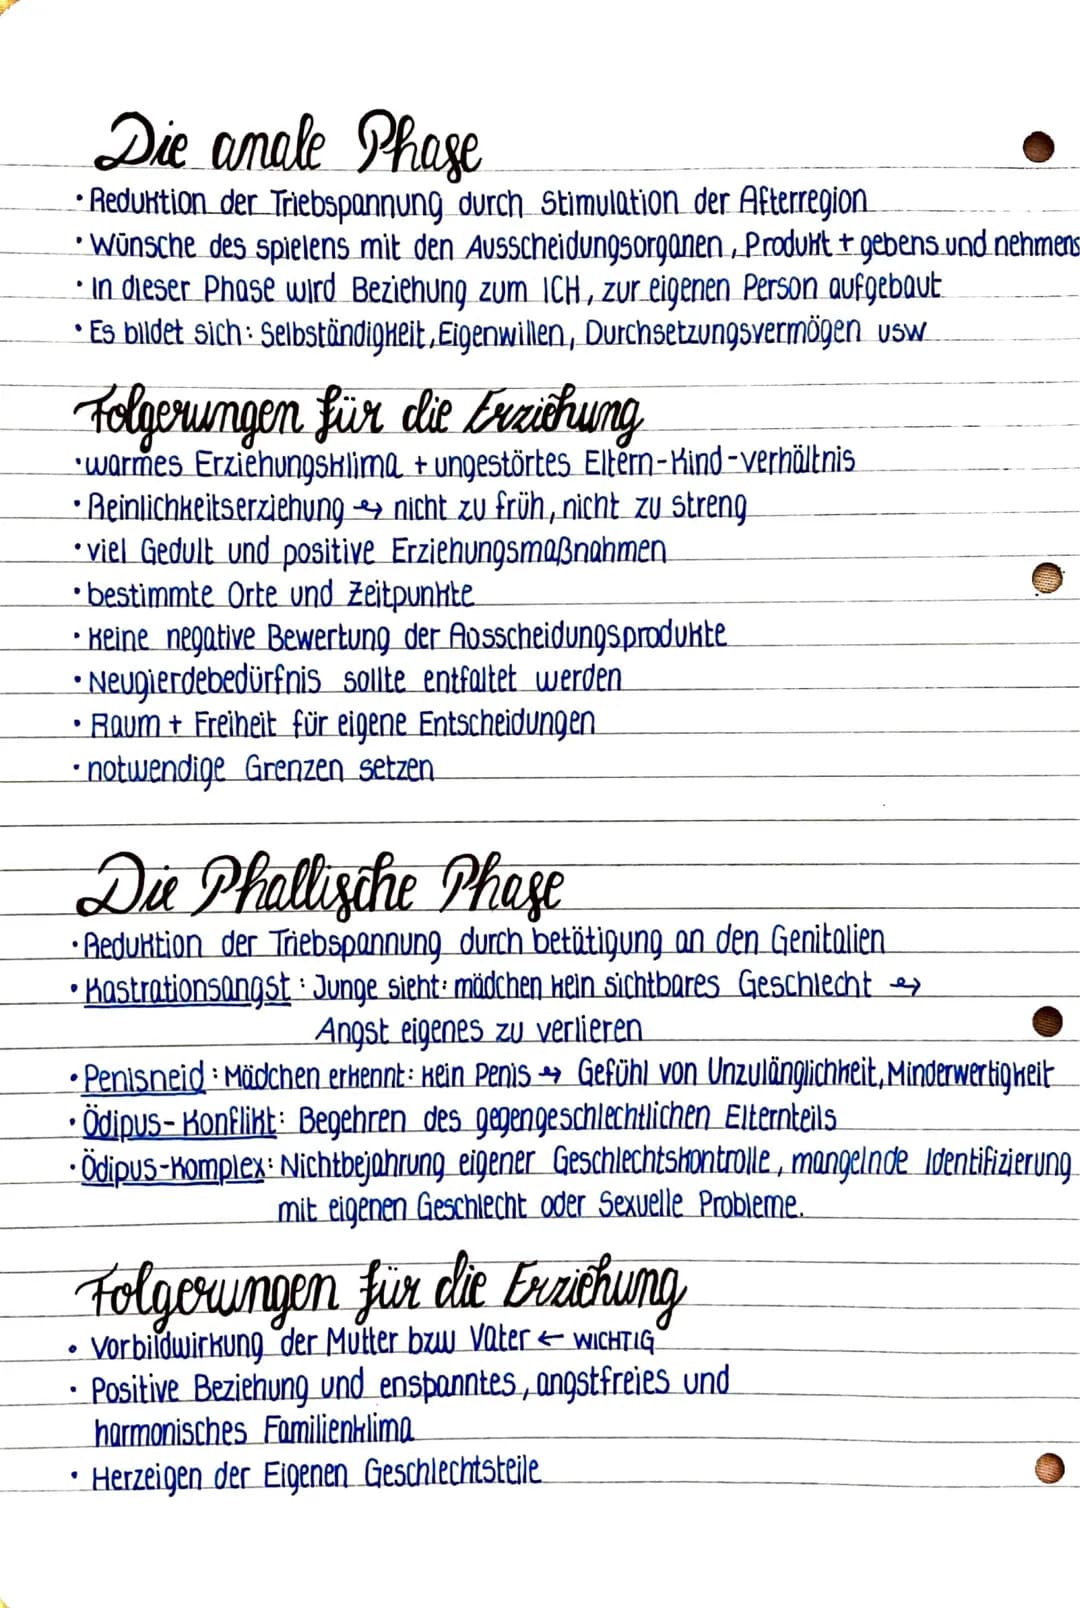 Die anale Phase
• Reduktion der Triebspannung durch Stimulation der Afterregion
• Wünsche des spielens mit den Ausscheidungsorganen, Produkt + gebens und nehmens
• In dieser Phase wird Beziehung zum ICH, zur eigenen Person aufgebaut
• Es bildet sich: Selbständigkeit, Eigenwillen, Durchsetzungsvermögen usw
Folgerungen für die Erziehung
• warmes Erziehungsklima + ungestörtes Eltern-Kind-verhältnis
• Reinlichkeitserziehung → nicht zu früh, nicht zu streng
• viel Gedult und positive Erziehungsmaßnahmen
• bestimmte Orte und Zeitpunkte
• keine negative Bewertung der Ausscheidungsprodukte
• Neugierdebedürfnis sollte entfaltet werden
• Raum + Freiheit für eigene Entscheidungen
• notwendige Grenzen setzen
Die Phallische Phase
• Reduktion der Triebspannung durch betätigung an den Genitalien
• Kastrationsangst: Junge sieht: mädchen kein sichtbares Geschlecht →
Angst eigenes zu verlieren
• Penisneid: Mädchen erkennt: kein Penis → Gefühl von Unzulänglichkeit, Minderwertigkeit
• Ödipus-Konflikt: Begehren des gegengeschlechtlichen Elternteils
• Ödipus-Komplex: Nichtbejahrung eigener Geschlechtskontrolle, mangelnde Identifizierung
mit eigenen Geschlecht oder Sexuelle Probleme.
Folgerungen für die Erziehung
• Vorbildwirkung der Mutter bzw Vater ← WICHTIG
• Positive Beziehung und enspanntes, angstfreies und
harmonisches Familienklima
• Herzeigen der Eigenen Geschlechtsteile